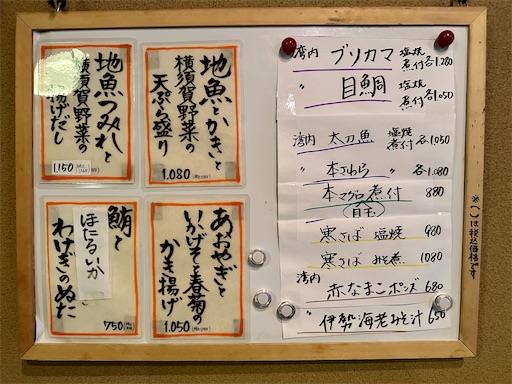 地魚つみれと
横須賀野菜の
揚げだし
1,150
地魚とかきと
横須賀野菜の
天ぷら盛り
1.080
鮪と
ほたるいか
わけぎのぬた
750
あおやぎと
いかげそと春菊の
かき揚げ
1.050
湾内 ブリカマ 塩焼 煮付 各1.280
〃 目鯛 塩焼 煮付 各1.050
湾内 太刀魚 塩焼 煮付 各1050
〃 本さわら 〃 各1.080
本マグロ煮付 880
目玉
寒さば 塩焼 980
寒さば みそ煮 1080
湾内 赤なまこポンズ 680
伊勢海老みそ汁 650
※( )は税込価格です